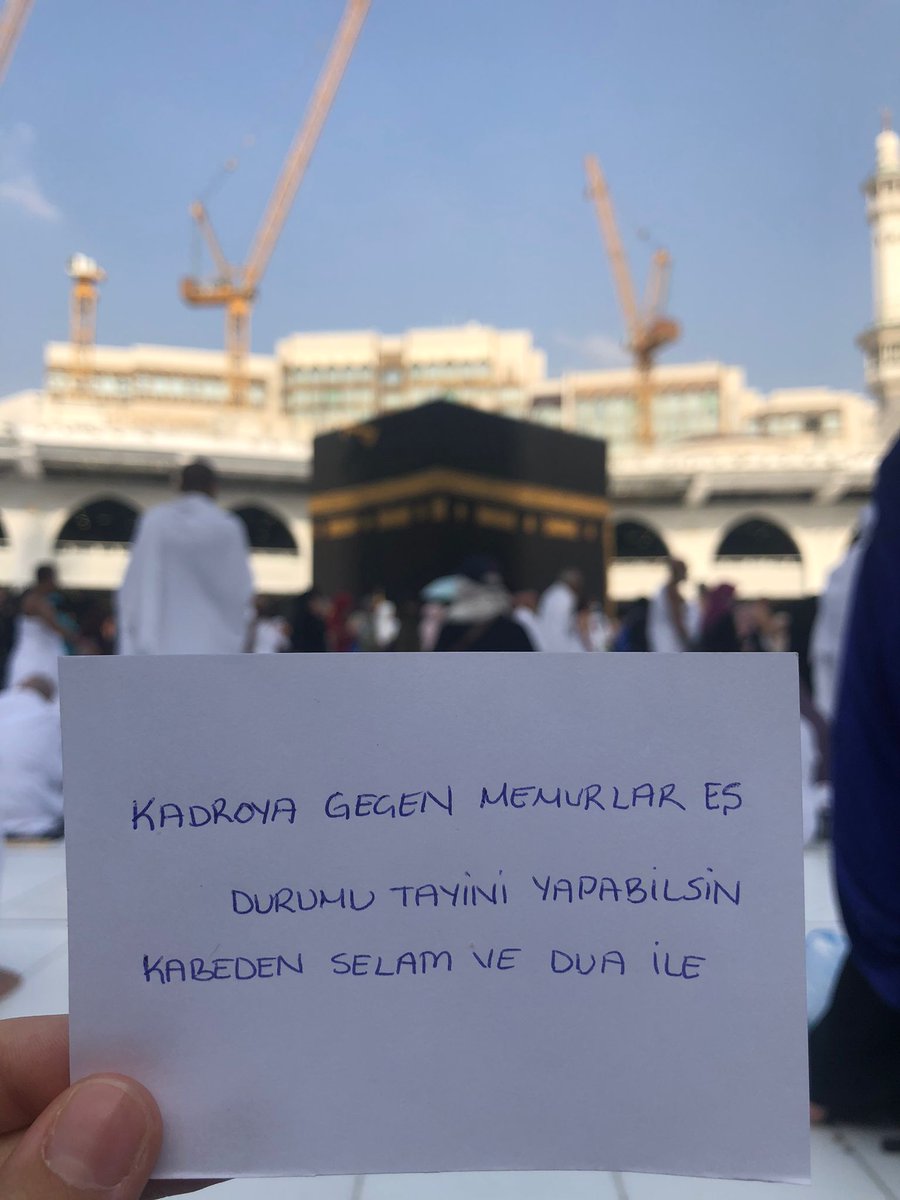 KADROYA GEGEN MEMURLAR EŞ
DURUMU TAYİNİ YAPABİLSİN
KABEDEN SELAM VE DUA İLE